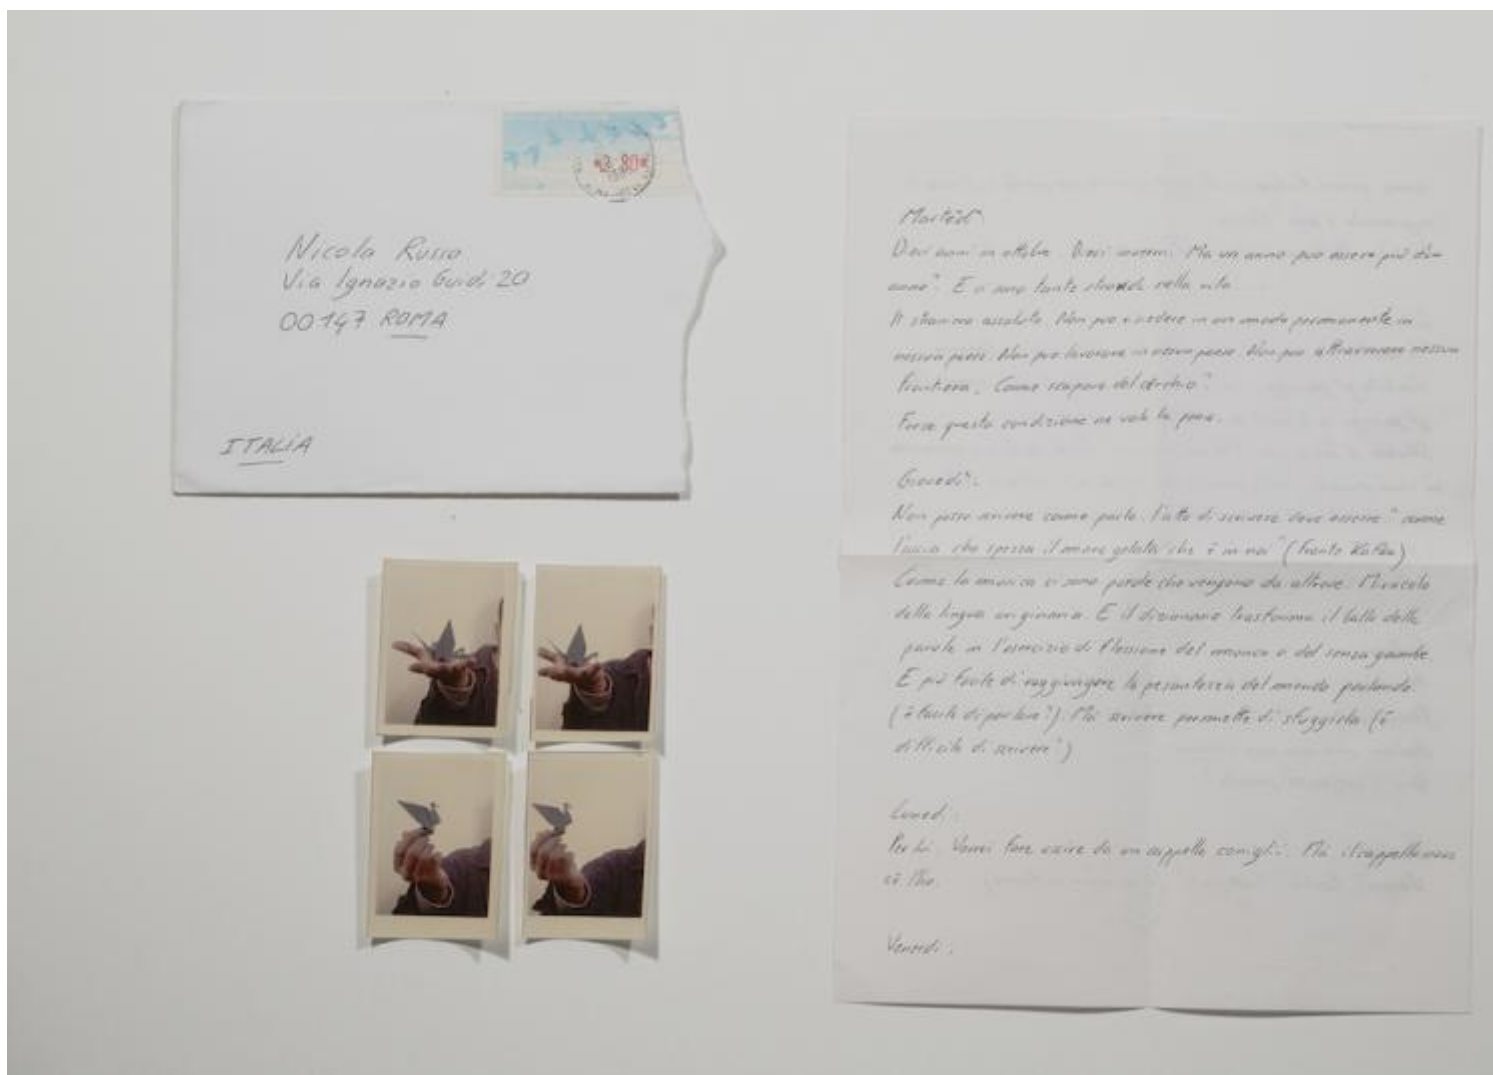 *2.80*
Nicola Russo
Via Ignazio Guidi 20
00147 ROMA
ITALIA
Martedì
Dieci anni in ottobre. Dieci inverni. Ma un anno può essere più d'un
anno? E ci sono tante strade nella vita...
Il straniero assoluto. Non può risiedere in un modo permanente in
nessun paese. Non può lavorare in nessun paese. Non può attraversare nessun
frontiera. Come scapare del cerchio?
Forse questa condizione ne vale la pena.
Giovedì:
Non posso scrivere come parlo. l'atto di scrivere deve essere "come
l'ascia che spezza il mare gelato che è in noi" (Frantz Kafka)
Come la musica ci sono parole che vengono da altrove. Miracolo
della lingua originaria. E il dizionario trasforma il ballo delle
parole in l'esercizio di flessione del monco o del senza gambe.
E più facile di raggiungere la pesantezza del mondo parlando.
(è facile di parlare?). Mà scrivere permette di sfuggirla (è
difficile di scrivere?)
Lunedì:
Per lui. Vorrei fare uscire da un cappello conigli. Mà il cappello non
è Mio.
Venerdì: